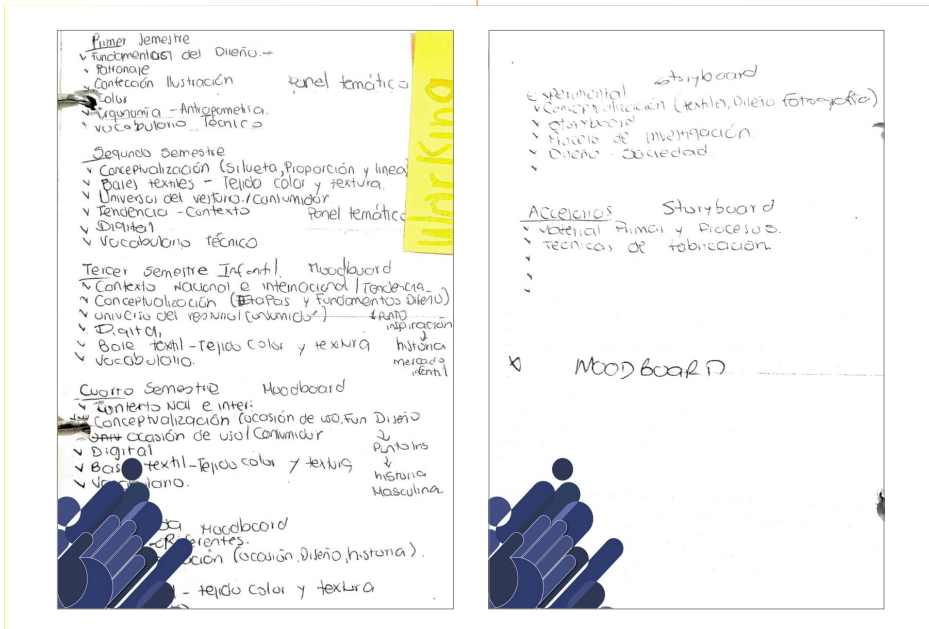 Primer Semestre
Fundamentos del Diseño.-
Patronaje
Confección Ilustración Panel temático
Color
Ergonomía - Antropometria.
Vocabulario Técnico
Segundo Semestre
Conceptualización (Silueta, Proporción y linea)
Bases textiles - Tejido color y textura.
Universo del vestuario./consumidor
Tendencia - Contexto Panel temático
Digital
Vocabulario Técnico
Warking
Tercer Semestre Infantil. Moodboard
Contexto Nacional e internacional / Tendencia
Conceptualización (Etapas y Fundamentos Diseño)
universo del vestuario (consumidor)
punto
inspiración
Digital,
Base textil - Tejido color y textura historia
Vocabulario. mercado
infantil
Cuarto Semestre Moodboard
Contexto Nal e inter.
Conceptualización (ocasión de uso, Fun Diseño
ocasión de uso / Consumidor
Digital Punto ins
Base textil - Tejido color y textura
historia
Masculina.
Moodboard
Referentes.
(ocasión, Diseño, historia).
- tejido color y textura
Storyboard
Experimental
Conceptualización (textiles, Diseño fotografía)
Storyboard
Proceso de investigación.
Diseño - Sociedad.
Accesorios Storyboard
Material Primas y Procesos.
Tecnicas de fabricación.
X MOODBOARD